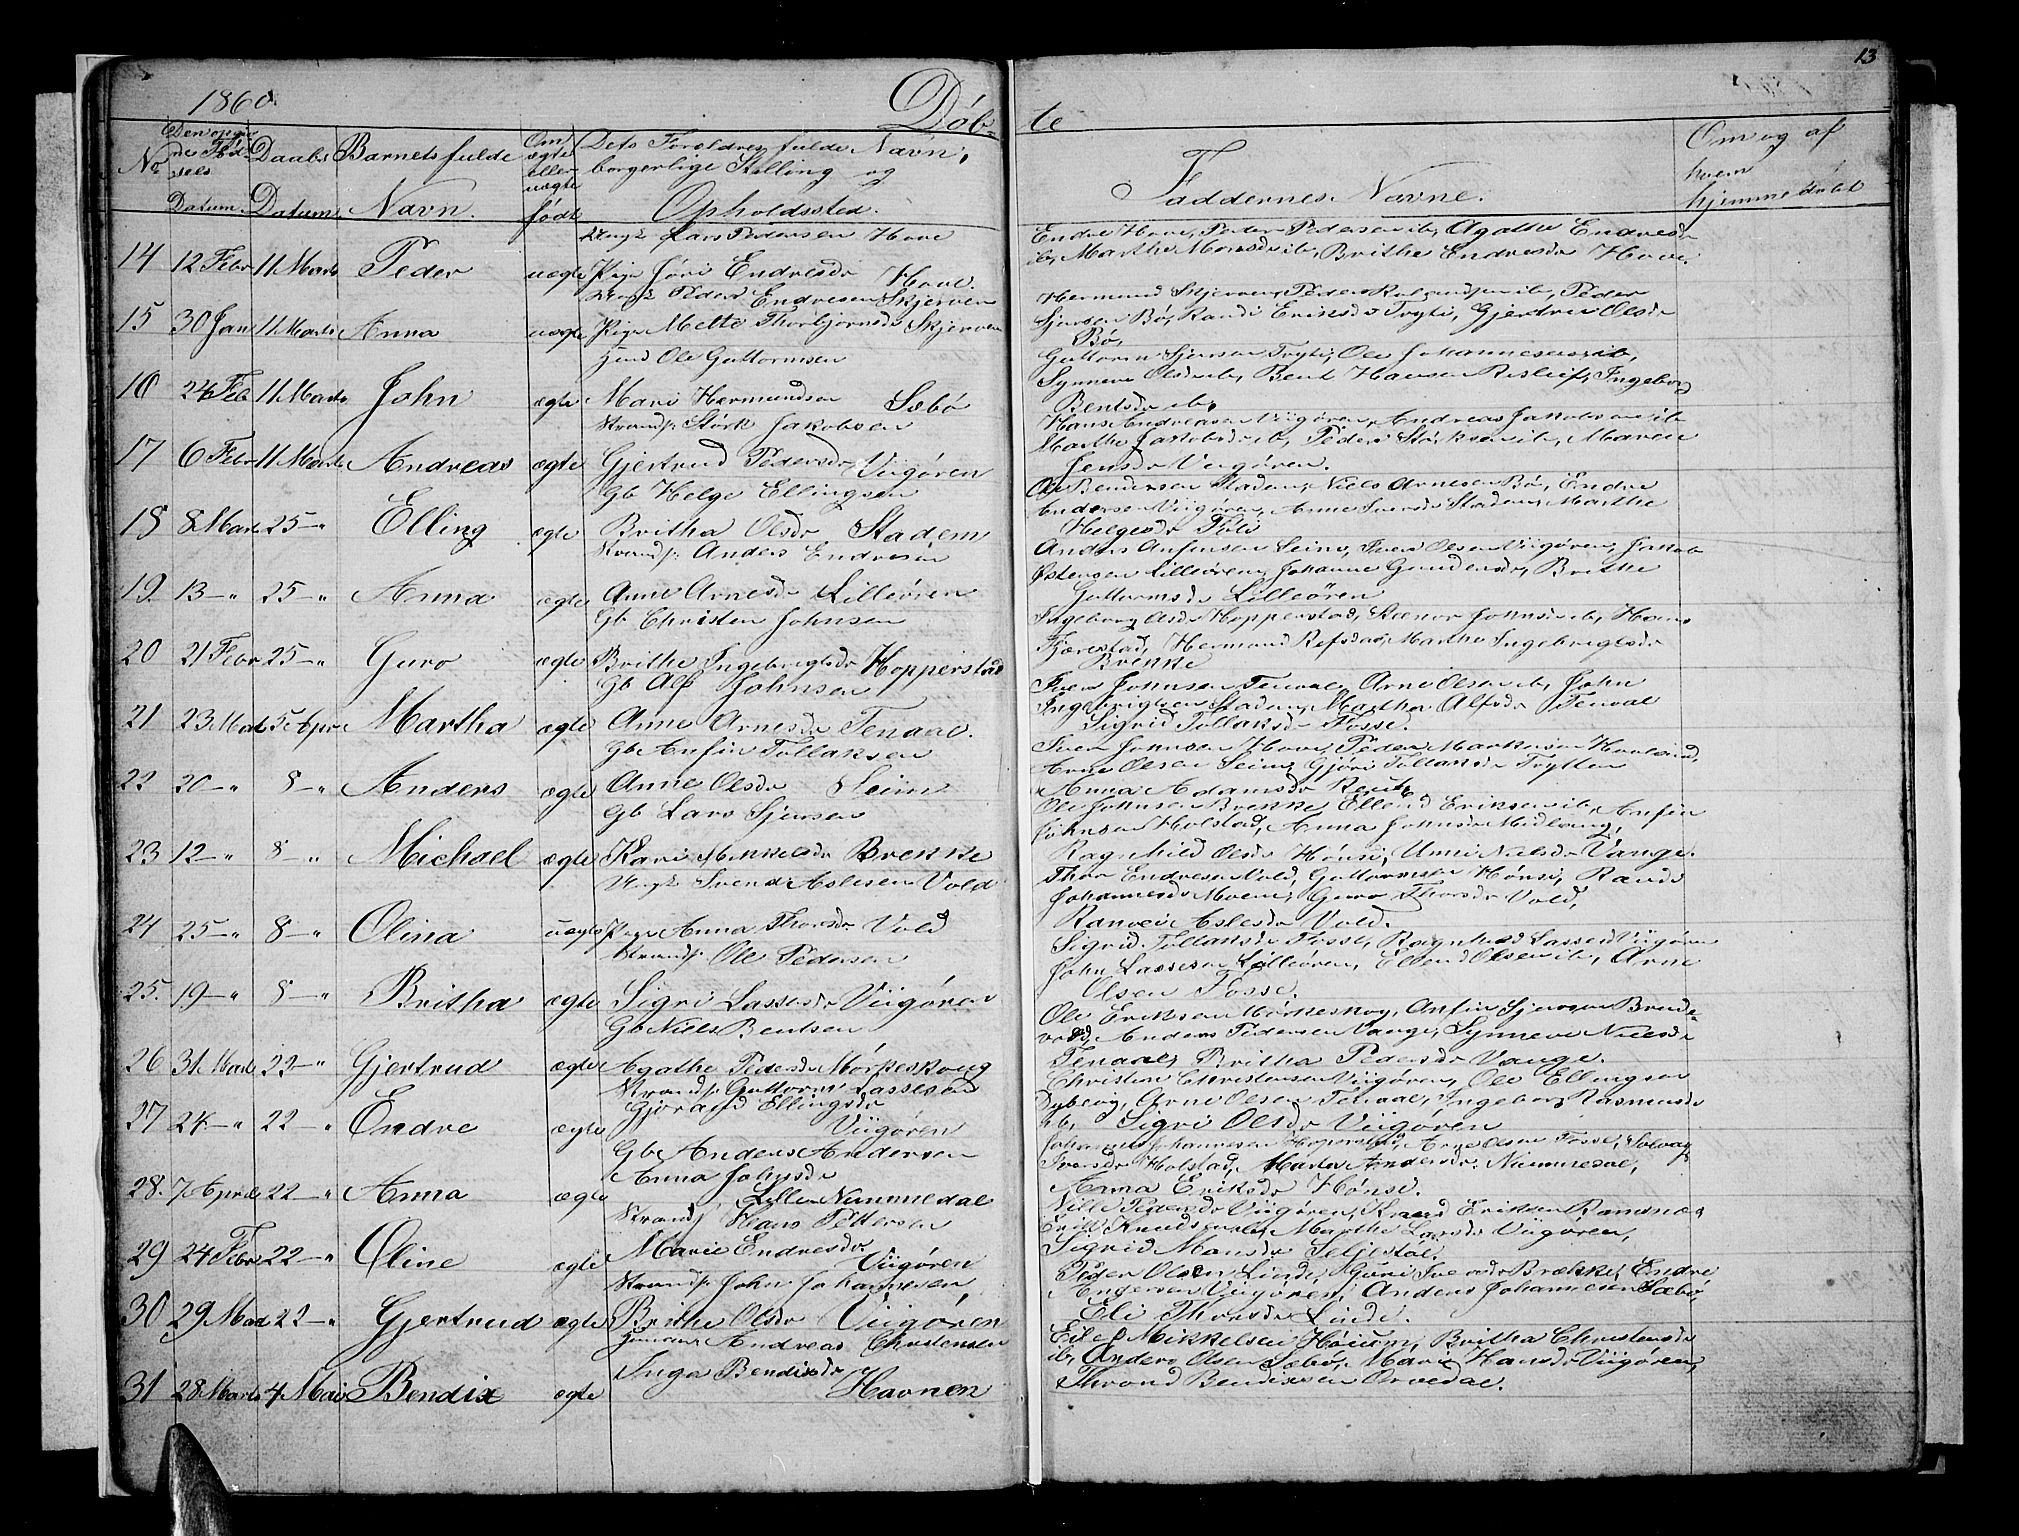 13
1860.
Døb- te
No
Den opgiv
ne Fød-
sels
Datum
Daabs
Datum
Barnets fulde
Navn.
Om
ægte
eller
uægte
født
Dets Foroldres fulde Navn,
borgerlige Stilling og
Opholdssted.
Faddernes Navne.
Om og af
hvem
hjemmedøbt
14 12 Febr 11 Marts Peder uægte
Ungk Lars Pedersen Hove
Pige Jøri Endresdr Hove.
Endre Hove, Peder Pedersen ib, Agathe Endresdr
ib, Marthe Monsdr ib, Brithe Endresdr Hove.
15 30 Jan 11 Marts Anna uægte
Ungk Peder Endresen Skjerven
Pige Mette Thorbjørnsdr Skjerven
Hermund Skjerven, Peder ib, Peder
Sjursen Bø, Randi Eriksdr Tryti, Gjertrud Olsdr
Bø,
16 24 Feb 11 Marts John ægte
Huusd Ole Guttormsen
Mari Hermundsdr Sæbø
Guttorm Sjursen Tryti, Ole Johannesen ib,
Synneve Olsdr ib, Bent Hansen Ingeborg
Bentsdr ib,
17 6 Febr 11 Marts Andreas ægte
Strands. Størk Jakobsen
Gjertrud Pedersdr Viigøren
Hans Andreasen Viigøren, Andreas Jakobsen ib
Marthe Jakobsdr ib, Peder Størksen ib, Maren
Jensdr Viigøren.
18 8 Mart 25 — " Elling ægte
Gb Helge Ellingsen
Britha Olsdr Stadem
Ole Bendixsen Stadem, Niels Arnesen Bø, Endre
Andersen Viigøren, Anne Iversdr Stadem, Marthe
Helgesdr
19. 13 — " 25 — " Anna ægte
Strands. Anders Endresen
Anne Arnesdr Lilleøren
Anders Anfinsen Seim, Iver Olsen Viigøren, Jakob
Østensen Lilleøren, Johanne Gundersdr, Brithe
Guttormsdr Lilleøren
20 21 Febr 25 — " Guro ægte
Gb Christen Johnsen
Brithe Ingebrigtsdr Hopperstad
Ingeborg Olsdr Hopperstad, Johnsen ib, Hans
Fjærestad, Hermund Refsdal, Marthe Ingebrigtsdr
Brekke
21 23 Mart 5 Apr Martha ægte
Gb Alf Johnsen
Anne Arnesdr Tenaal.
Iver Johnsen Tenaal, Arne Olsen ib, John
Ingebrigtsen Stadem, Martha Alfsdr Tenaal
Sigrid Tollaksdr Fosse.
22 20 — " 8 — " Anders ægte
Gb. Anfin Tollaksen
Anne Olsdr Seim
Iver Johnsen Hove, Peder Markusen Hovland,
Arne Olsen Seim, Gjøri Tollaksdr Trytten
Anna Adamsdr
23 12 — " 8 — " Michael ægte
Gb Lars Sjursen
Kari Mikkelsdr Brekke
Ole Johnsen Brekke Ellend Eriksen ib, Anfin
Johnsen Holstad, Anna Johnsdr Midlang,
Ragnhild Olsdr Hønsi, Unni Nielsdr Vange.
24 25 — " 8 — " Olina uægte
Ungk Svend Aslesen Vold
Pige Anna Thorsdr Vold
Thor Endresen Vold, Guttormsen Hønsi, Randi
Johannesdr Moen, Guro Thorsdr Vold,
Ranvei Aslesdr Vold.
25. 19 — " 8 — " Britha ægte
Strands. Ole Pedersen
Sigri Lassesdr Viigøren
Sigrid Tollaksdr Fosse, Ragnhild Lassesd Viigøren
John Lassesen Lilleøren, Ellend Olsen ib, Arne
Olsen Fosse.
26 31 Mart 22 — " Gjertrud ægte
Gb Niels Bentsen
Agathe Pedersdr Mørkeskoug
Ole Eriksen Mørkeskog, Anfin Sjursen Brude-
vold, Anders Pedersen Vange, Synneve Nielsdr
Tenaal, Britha Pedersdr Vange.
27 24 — " 22 — " Endre ægte
Strands. Guttorm Lassesen
Gjørand Ellingsdr
Viigøren
Christen Christensen Viigøren, Ole Ellingsen
Dybevig, Arne Olsen Tenaal, Ingeborg Rasmusdr
ib, Sigri Olsdr Viigøren
28. 7 April 22 — " Anna ægte
Gb. Anders Andersen
Anna Johnsdr
Lille Nummedal
Johannes Johannesen Hopperstad, Arne Olsen Fosse, Solvay
Iversdr Holstad, Marta Andersdr Nummedal,
Anna Eriksdr Hønsi.
29 24 Febr 22 — " Oline ægte
Strands Hans Pettersen
Marie Endresdr
Viigøren
Nille Pedersdr Viigøren, Knud Eriksen
Erik Knudsen ib, Marthe Larsdr Viigøren,
Sigrid Monsdr
30 29 Mart 22 — " Gjertrud ægte
Strands. John Johannesen,
Brithe Olsdr Viigøren
Peder Olsen Linde, Guri Iversdr Brække, Endre
Andersen Viigøren, Anders Johannesen Sæbø,
Eli Thorsdr Linde.
31 28 Marts 4 Mai Bendix ægte
Andreas Christensen
Inga Bendixdr
Havnen
Mikkelsen Høium, Britha Christensdr
ib, Anders Olsen Sæbø, Marie Hansdr Viigøren,
Thrond Bendixsen Arvedal.